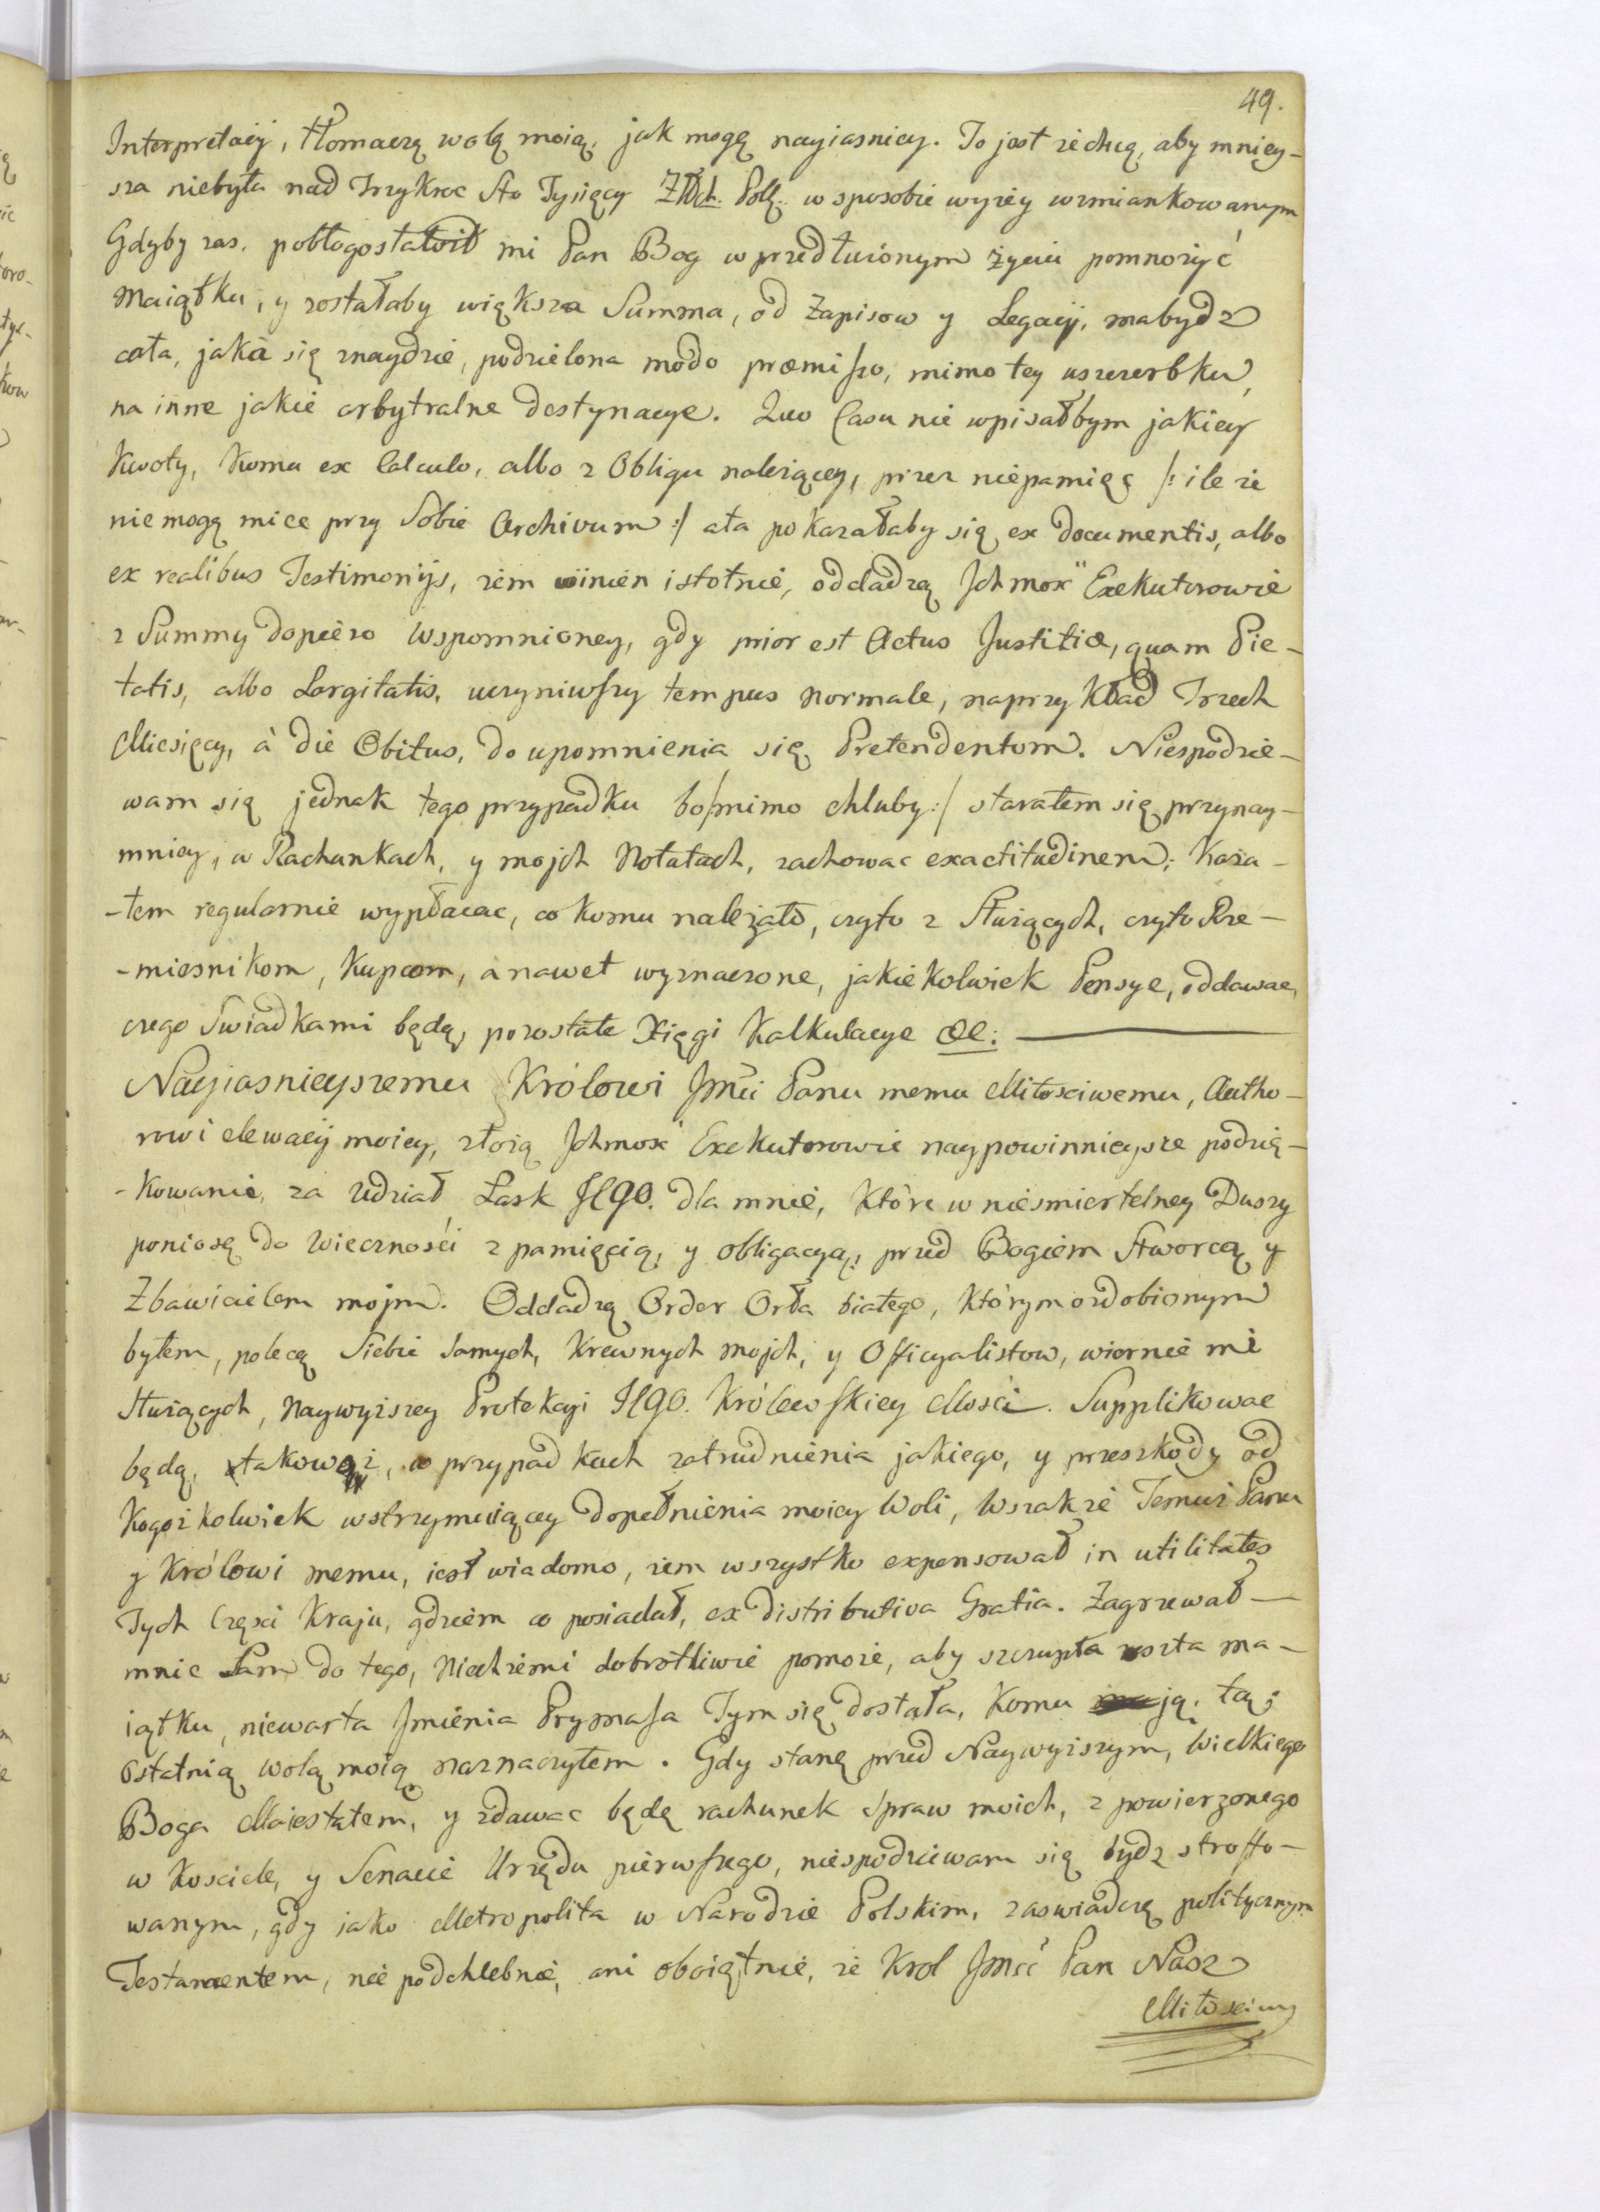 49.
Interpretacij, tłomaczą wolą moią, jak mogę nayiasniey. To jest że chcę, aby mniey-
sza niebyła nad Trzykroc Sto Tysięcy Złłch. Polł. w sposobie wyżey wzmiankowanym
Gdyby zas pobłogosławił mi Pan Bog w przedłużonym życiu pomnożyć
Maiątku, y zostałaby większa Summa, od Zapisow y Legacij, ma bydz
cała, jaka się znaydzie, podzielona modo præmisso, mimo tey uszczerbku,
na inne jakie arbytralne destynacye. Quo Casu nie wpisałbym jakiey
Kwoty, Komu ex Calculo, albo z Obligu należącey, przez niepamięc /: ile że
nie mogę miec przy Sobie Archivum :/ a ta pokazałaby się ex documentis, albo
ex realibus Testimonijs, żem winien istotnie, oddadzą Jchmox Exekutorowie
z Summy dopiero wspomnioney, gdy prior est Actus Justitiæ, quam Pie-
tatis, albo Largitatis, uczyniwszy tempus normale, naprzykład Trzech
Miesięcy, à die Obitus, do upomnienia się Pretendentom. Niespodzie-
wam się jednak tego przypadku bo /mimo chluby :/ starałem się przynay-
mniey, w Rachunkach, y mojch Notatach, zachowac exactitudinem; Kaza-
-łem regularnie wypłacac, co komu należało, czyto z Służących, czyto Rze-
-miesnikom, Kupcom, a nawet wyznaczone, jakiekolwiek Pensye, oddawac,
czego Swiadkami będą, pozostałe Xięgi Kalkulacye &c:
Nayjasnieyszemu Królowi Jmci Panu memu Miłosciwemu, Autho-
rowi elewacij moiey, złożą Jchmox Exekutorowie naypowinnieysze podzię-
-kowanie, za Udział Łask JEgo. dla mnie, Które w niesmiertelney Duszy
poniosę do Wiecznośći z pamięcią, y obligacyą, przed Bogiem Stworcą y
Zbawicielem mojm. Oddadzą Order Orła białego, którym ozdobionym
byłem, polecą Siebie Samych, Krewnych mojch, y Officyalistow, wiernie mi
służących, Naywyższey Protekcyi JEgo. Królewskiey Mośći. Supplikowac
będą, takowąż, w przypadkach zatrudnienia jakiego, y przeszkody od
kogożkolwiek wstrzymuiącey dopełnienia moiey Woli, Wszakże Temuż Panu
y Królowi memu, iest wiadomo, żem wszystko expensował in utilitates
Tych Częsci Kraju, gdziem co posiadał, ex distributiva Gratia. Zagrzewał
mnie Sam do tego, Niechżemi dobrotliwie pomoże, aby szczupła reszta ma-
iątku, niewarta Jmienia Prymasa Tym się dostała, Komu ją, tą;
Ostatnią wolą moią naznaczyłem. Gdy stanę przed Naywyższym, Wielkiego
Boga Maiestatem, y zdawac będę rachunek Spraw moich, z powierzonego
w Kosciele, y Senacie Urzędu pierwszego, niespodziewam się bydz stroffo-
wanym, gdy iako Metropolita w Narodzie Polskim, zaswiadczę politycznym
Testamentem, nie podchlebnie, ani oboiętnie, że Krol Jmść Pan Nasz
Miłosciwy